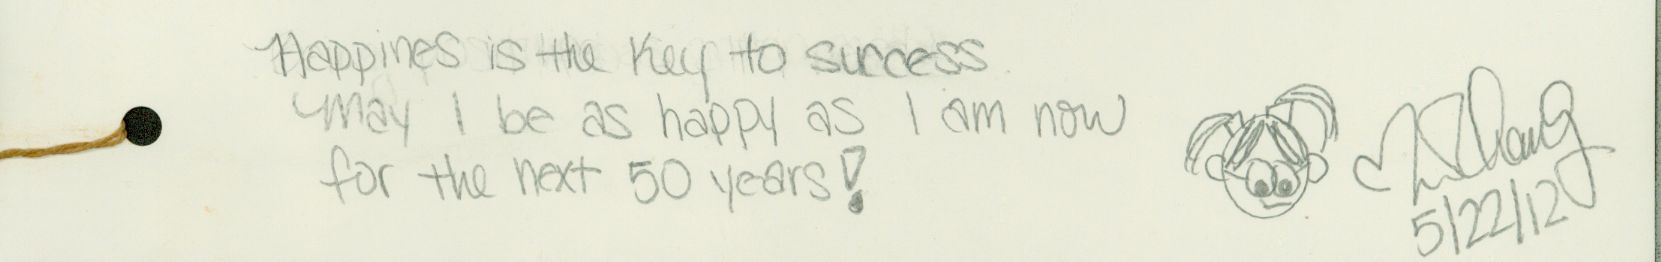 Happines is the key to success.
May I be as happy as I am now
for the next 50 years!
5/22/12